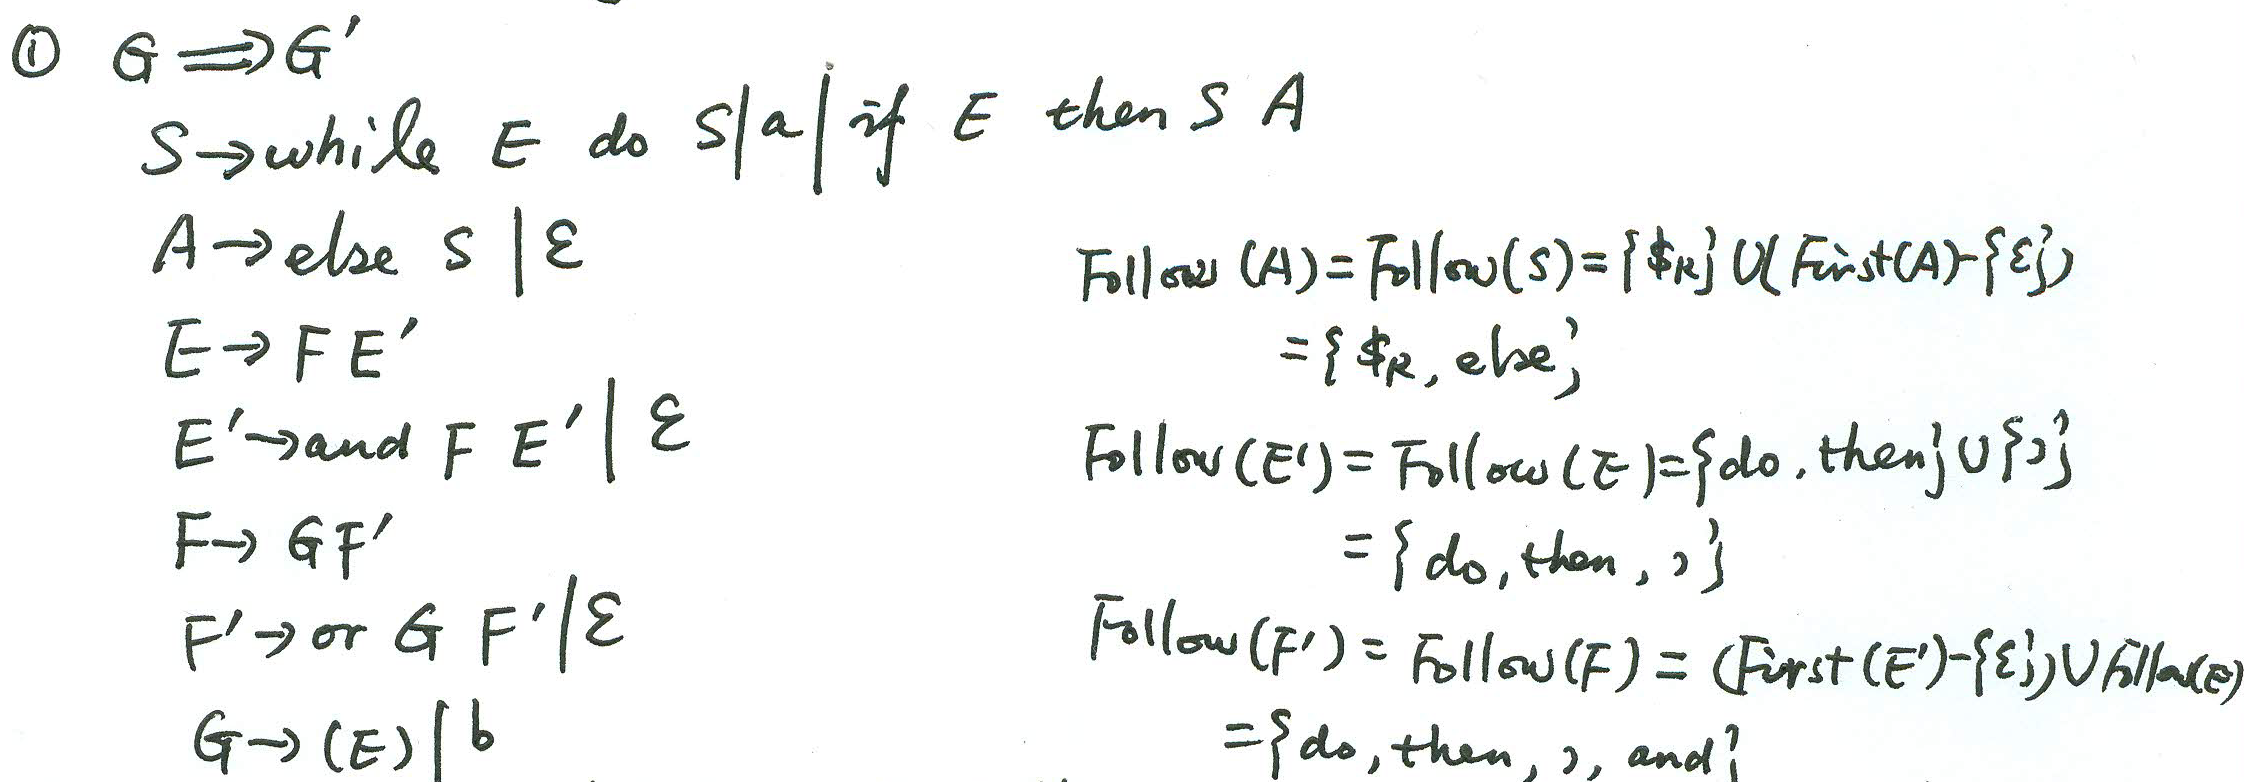 ① G⟹G′
S→while E do S|a|if E then S A
A→else S|ε
E→FE′
E′→and F E′|ε
F→GF′
F′→or G F′|ε
G→(E)|b
Follow(A)=Follow(S)={$R}∪(First(A)-{ε})
={$R, else}
Follow(E′)=Follow(E)={do, then}∪{)}
={do, then, )}
Follow(F′)=Follow(F)=(First(E′)-{ε})∪Follow(E)
={do, then, ), and}